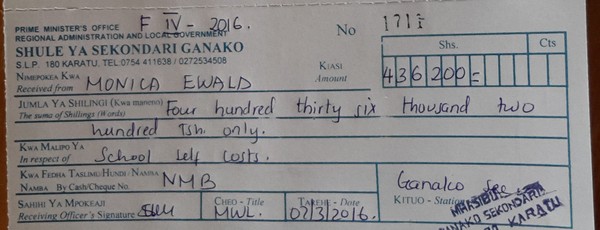 PRIME MINISTER'S OFFICE F IV - 2016. No 1711
REGIONAL ADMINISTRATION AND LOCAL GOVERNMENT
SHULE YA SEKONDARI GANAKO
S.L.P. 180 KARATU, TEL:0754 411638 / 0272534508
Shs. Cts
NIMEPOKEA KWA MONICA EWALD KIASI 436200=
Received from Amount
JUMLA YA SHILINGI (Kwa maneno) Four hundred thirty six thousand two
The sums of Shillings (Words)
hundred Tsh. only.
KWA MALIPO YA School self costs.
In respect of
KWA FEDHA TASLIMU/HUNDI/NAMBA NMB Ganako
NAMBA By Cash/Cheque No. KITUO - Station
SAHIHI YA MPOKEAJI CHEO - Title TAREHE - Date
Receiving Officer's Signature MWL. 02/3/2016.
MHASIBU
GANAKO SEKONDARI
KARATU